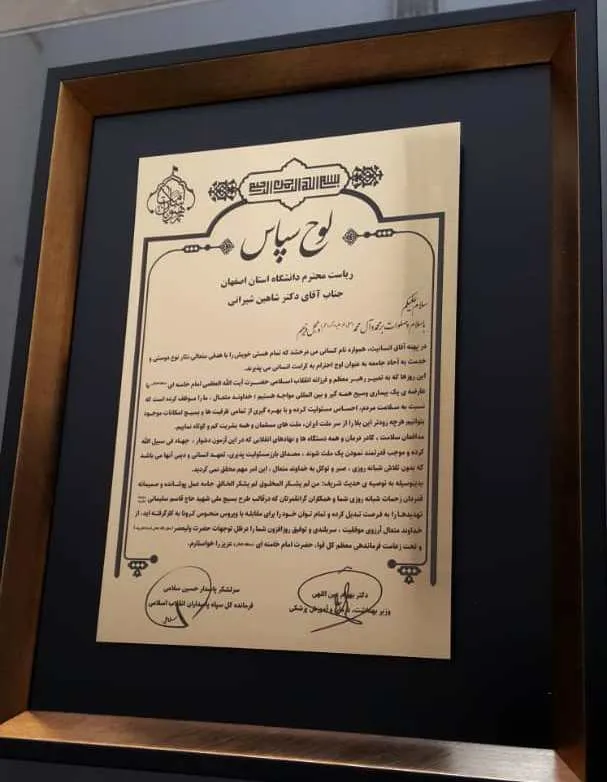 بسم الله الرحمن الرحیم
لوح سپاس
ریاست محترم دانشگاه استان اصفهان
جناب آقای دکتر شاهین شیرانی
سلام علیکم
با سلام و صلوات بر محمد و آل محمد و عجل فرجهم
در پهنه آقای انسانیت، همواره نام کسانی می درخشد که تمام هستی خویش را با هدفی متعالی نثار نوع دوستی و
خدمت به آحاد جامعه به عنوان اوج احترام به کرامت انسانی می پذیرند.
این روزها که به تعبیر رهبر معظم و فرزانه انقلاب اسلامی حضرت آیت الله العظمی امام خامنه ای با
عارضه ی یک بیماری وسیع همه گیر و بین المللی مواجه هستیم را خداوند متعال ، ما را موظف کرده است که
نسبت به سلامت مردم، احساس مسئولیت کرده و با بهره گیری از تمامی ظرفیت ها و بسیج امکانات موجود
بتوانیم هرچه زودتر این بلا را از سر ملت ایران، ملت های مسلمان و همه بشریت کم و کوتاه نماییم.
مدافعان سلامت ، کادر درمان و همه دستگاه ها و نهادهای انقلابی که در این آزمون دشوار ، جهاد فی سبیل الله
کرده و موجب قدرتمند نمودن یک ملت شوند ، مصداق بارز مسئولیت پذیری، تعهد انسانی و دینی آنها می باشد
که بدون تلاش شبانه روزی ، صبر و توکل به خداوند متعال ، این امر مهم محقق نمی گردید.
بدینوسیله به توصیه ی حدیث شریف: من لم یشکر المخلوق لم یشکر الخالق جامه عمل پوشانده و صمیمانه
قدردان زحمات شبانه روزی شما و همکاران گرانقدرتان که درقالب طرح بسیج ملی شهید حاج قاسم سلیمانی
تهدیدها را به فرصت تبدیل کرده و تمام توان خود را برای مقابله با ویروس منحوس کرونا به کار گرفته اید، از
خداوند متعال آرزوی موفقیت ، سربلندی و توفیق روزافزون شما را درظل توجهات حضرت ولیعصر
و تحت زعامت فرماندهی معظم کل قوا، حضرت امام خامنه ای عزیز را خواستارم.
دکتر بهرام عین اللهی
وزیر بهداشت، درمان و آموزش پزشکی
سرلشکر پاسدار حسین سلامی
فرمانده کل سپاه پاسداران انقلاب اسلامی